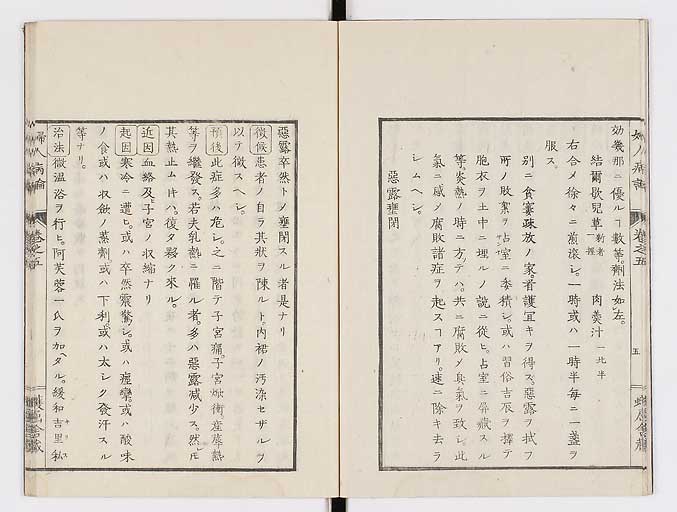 婦人病論　卷之五　五
効幾那ニ優ルヿ數等。劑法如左。
結爾歇兒草　新者一握　肉羹汁　一北半
右合〆徐々ニ煎滾シ。一時或ハ一時半每ニ一盞ヲ
服ス。
別ニ貪窶疎放ノ家。看護宜キヲ得ス。惡露ヲ拭フ
所ノ敗絮ヲ占室ニ委積シ。或ハ習俗吉辰ヲ擇テ
胞衣ヲ土中ニ埋ルノ說ニ從ヒ。占室ニ屏藏スル
等炎熱ノ時ニ方テハ。共ニ腐敗〆臭氣ヲ致シ。此
氣ニ感〆腐敗諸症ヲ起スヿアリ。速ニ除キ去ラ
シムヘシ。
惡露壅閉
惡露卒然ト〆壅閉スル者是ナリ
徵候患者ノ自ラ其狀ヲ陳ルト。內裙ノ汚染セザルヲ
以テ徵スヘシ。
預後此症多ハ危シ。之ニ階テ子宮痛。子宮焮衝產褥熱
等ヲ繼發ス。若夫乳熱ニ罹ル者。多ハ惡露減少ス。然𪜈
其熱止ム片ハ。復タ夥ク來ル。
近因血絡及ヒ子宮ノ收縮ナリ
起因寒冷ニ遭ヒ。或ハ卒然震驚シ。或ハ痙攣。或ハ酸味
ノ食或ハ收斂ノ蒸劑或ハ下利。或ハ太シク發汗スル
等ナリ。
治法微溫浴ヲ行ヒ。阿芙蓉一氏ヲ加ヘタル。緩和吉里私
婦人病論　卷之五